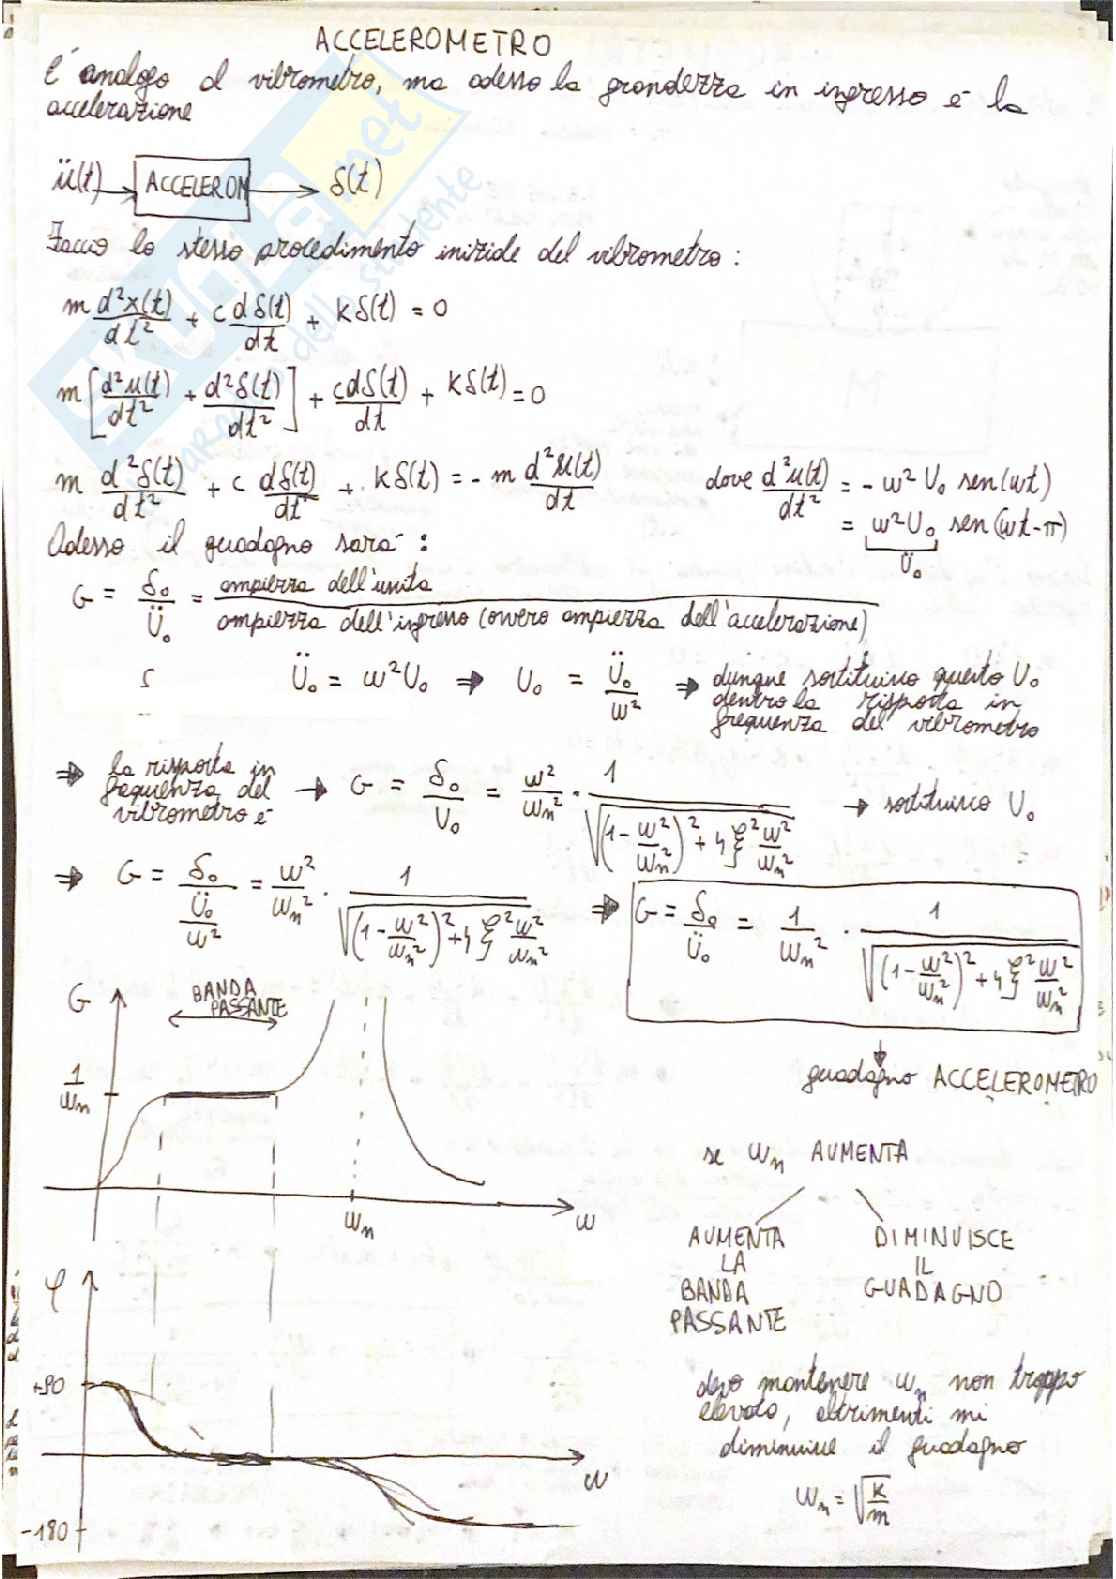 ACCELEROMETRO
E' analogo al vibrometro, ma adesso la grandezza in ingresso è la
accelerazione
ü(t) → ACCELEROM → δ(t)
Faccio lo stesso procedimento iniziale del vibrometro :
m d²x(t)/dt² + c dδ(t)/dt + kδ(t) = 0
m [d²u(t)/dt² + d²δ(t)/dt²] + c dδ(t)/dt + kδ(t) = 0
m d²δ(t)/dt² + c dδ(t)/dt + kδ(t) = - m d²u(t)/dt dove d²u(t)/dt² = - ω² U₀ sen(ωt)
= ω²U₀ sen(ωt-π)
Ü₀
Adesso il guadagno sarà :
G = δ₀/Ü₀ = ampiezza dell'uscita / ampiezza dell'ingresso (ovvero ampiezza dell'accelerazione)
Ü₀ = ω²U₀ ⇒ U₀ = Ü₀/ω² ⇒ dunque sostituisco questo U₀
dentro la risposta in
frequenza del vibrometro
⇒ la risposta in
frequenza del
vibrometro è → G = δ₀/U₀ = ω²/ωn² · 1/√((1-ω²/ωn²)² + 4ξ²ω²/ωn²) → sostituisco U₀
⇒ G = δ₀/(Ü₀/ω²) = ω²/ωn² · 1/√((1-ω²/ωn²)²+4ξ²ω²/ωn²) ⇒ G = δ₀/Ü₀ = 1/ωn² · 1/√((1-ω²/ωn²)² + 4ξ²ω²/ωn²)
guadagno ACCELEROMETRO
G
BANDA
PASSANTE
1/ωn
ωn
ω
se ωn AUMENTA
AUMENTA
LA
BANDA
PASSANTE
DIMINUISCE
IL
GUADAGNO
φ
+90
ω
-180
devo mantenere ωn non troppo
elevato, altrimenti mi
diminuisce il guadagno
ωn = √(k/m)
skuola.net